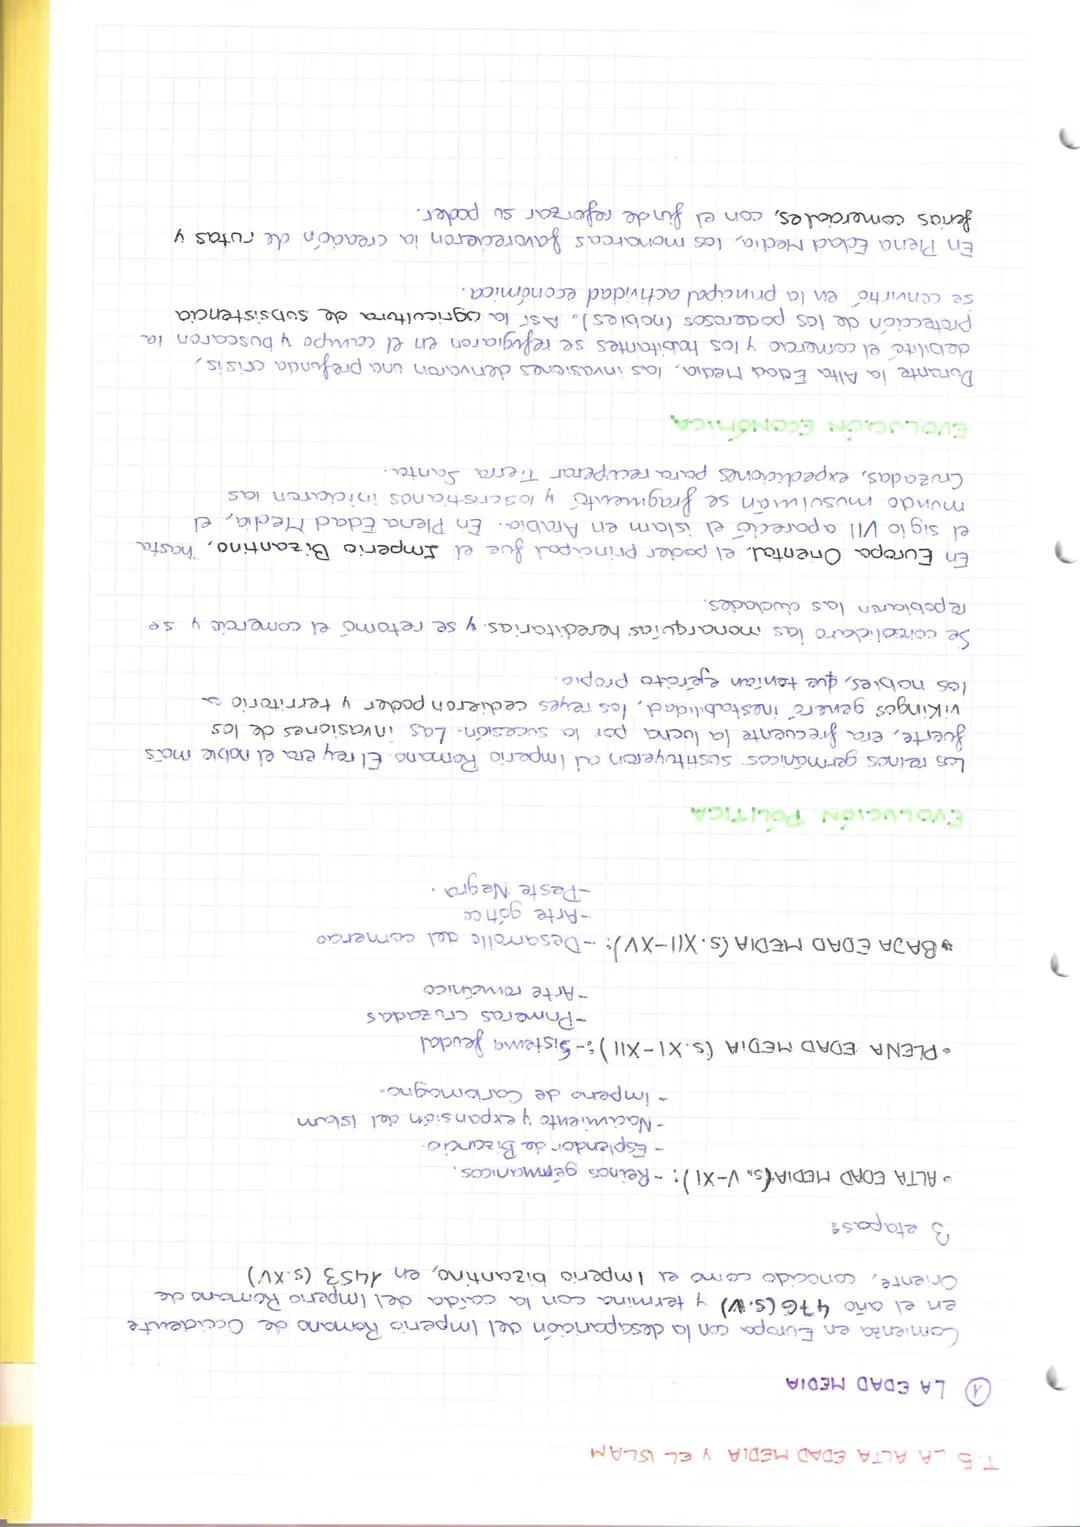 T.5 LA ALTA EDAD MEDIA Y EL ISLAM
① LA EDAD MEDIA
Comienza en Europa con la desaparición del Imperio Romano de Occidente
en el año 476 (s.V) y termina con la caída del Imperio Romano de
Oriente, conocido como el Imperio bizantino, en 1453 (s.XV)
3 etapas:
• ALTA EDAD MEDIA (s. V-XI): - Reinos germanicos.
- Esplendor de Bizancio.
- Nacimiento y expansión del islam
- imperio de Carlomagno.
• PLENA EDAD MEDIA (s.XI-XII): - Sistema feudal
- Primeras cruzadas
- Arte románico
• BAJA EDAD MEDIA (s.XII-XV): - Desarrollo del comercio
- Arte gótico
- Peste Negra.
EVOLUCIÓN POLITICA
Los reinos germánicos sustituyeron al Imperio Romano. El rey era el noble más
fuerte, era frecuente la lucha por la sucesión. Las invasiones de los
vikingos generó inestabilidad, los reyes cedieron poder y territorio a
los nobles, que tenían ejército propio.
Se consolidaro las monarquías hereditarias y se retomó el comercio y se
repoblaron las ciudades.
En Europa Oriental, el poder principal fue el Imperio Bizantino, hasta
el siglo VII apareció el islam en Arabia. En Plena Edad Media, el
mundo musulmán se fragmentó y los cristianos iniciaron las
Cruzadas, expediciones para recuperar Tierra Santa.
EVOLUCIÓN ECONÓMICA
Durante la Alta Edad Media, las invasiones derivaron una profunda crisis,
debilitó el comercio y los habitantes se refugiaron en el campo y buscaron la
protección de los poderosos (nobles). Así la agricultura de subsistencia
se convirtió en la principal actividad económica.
En Plena Edad Media, los monarcas favorecieron la creación de rutas y
ferias comerciales, con el fin de reforzar su poder.